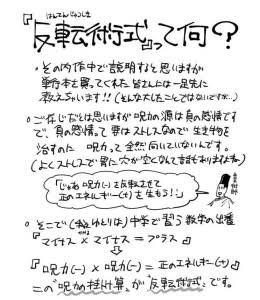 はんてんじゅつしき
『反転術式』って何？
・その内作中で説明すると思いますが
単行本を買ってくれた皆さんには一足先に
教えちゃいます!!（そんな大したことではないですが…）
・ご存じだとは思いますが呪力の源は負の感情です
で、負の感情って要はストレスなので生き物を
治すのに 呪力って全然向いていないんです。
（よくストレスで胃に穴が空くなんて話もありますよね）
「じゃあ呪力(-)を反転させて
正のエネルギー(+)を生もう!!」
・そこで（私とゆとりは）中学で習う数学の出番
『マイナス×マイナス＝プラス』
『呪力(-)×呪力(-)＝正のエネルギー(+)』
この"呪力の掛け算"が"反転術式"です。